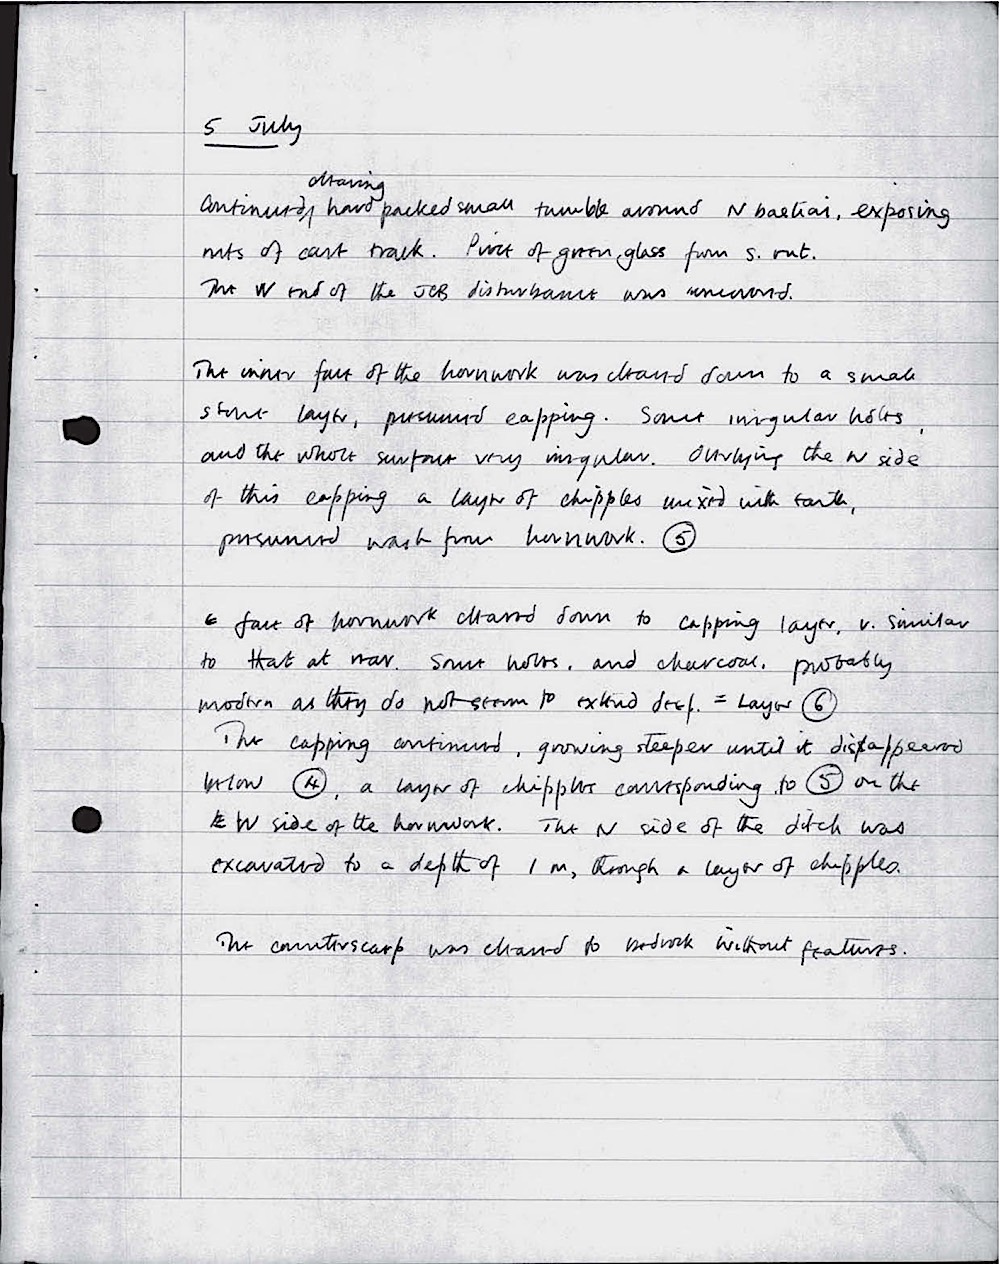 5 July
clearing
Continued, hard packed small tumble around N bastion, exposing
ruts of cart track. Piece of green glass from S. rut.
The W end of the JCB disturbance was uncovered.
The inner face of the hornwork was cleared down to a small
stone layer, presumed capping. Some irregular holes,
and the whole surface very irregular. Overlying the N side
of this capping a layer of chipples mixed with earth,
presumed wash from hornwork. ⑤
face of hornwork cleared down to capping layer, v. similar
to that at rear. Some holes, and charcoal, probably
modern as they do not seem to extend deep. = Layer ⑥
The capping continued, growing steeper until it disappeared
below ④, a layer of chipples corresponding to ⑤ on the
W side of the hornwork. The N side of the ditch was
excavated to a depth of 1 m, through a layer of chipples.
The counterscarp was cleared to bedrock without features.